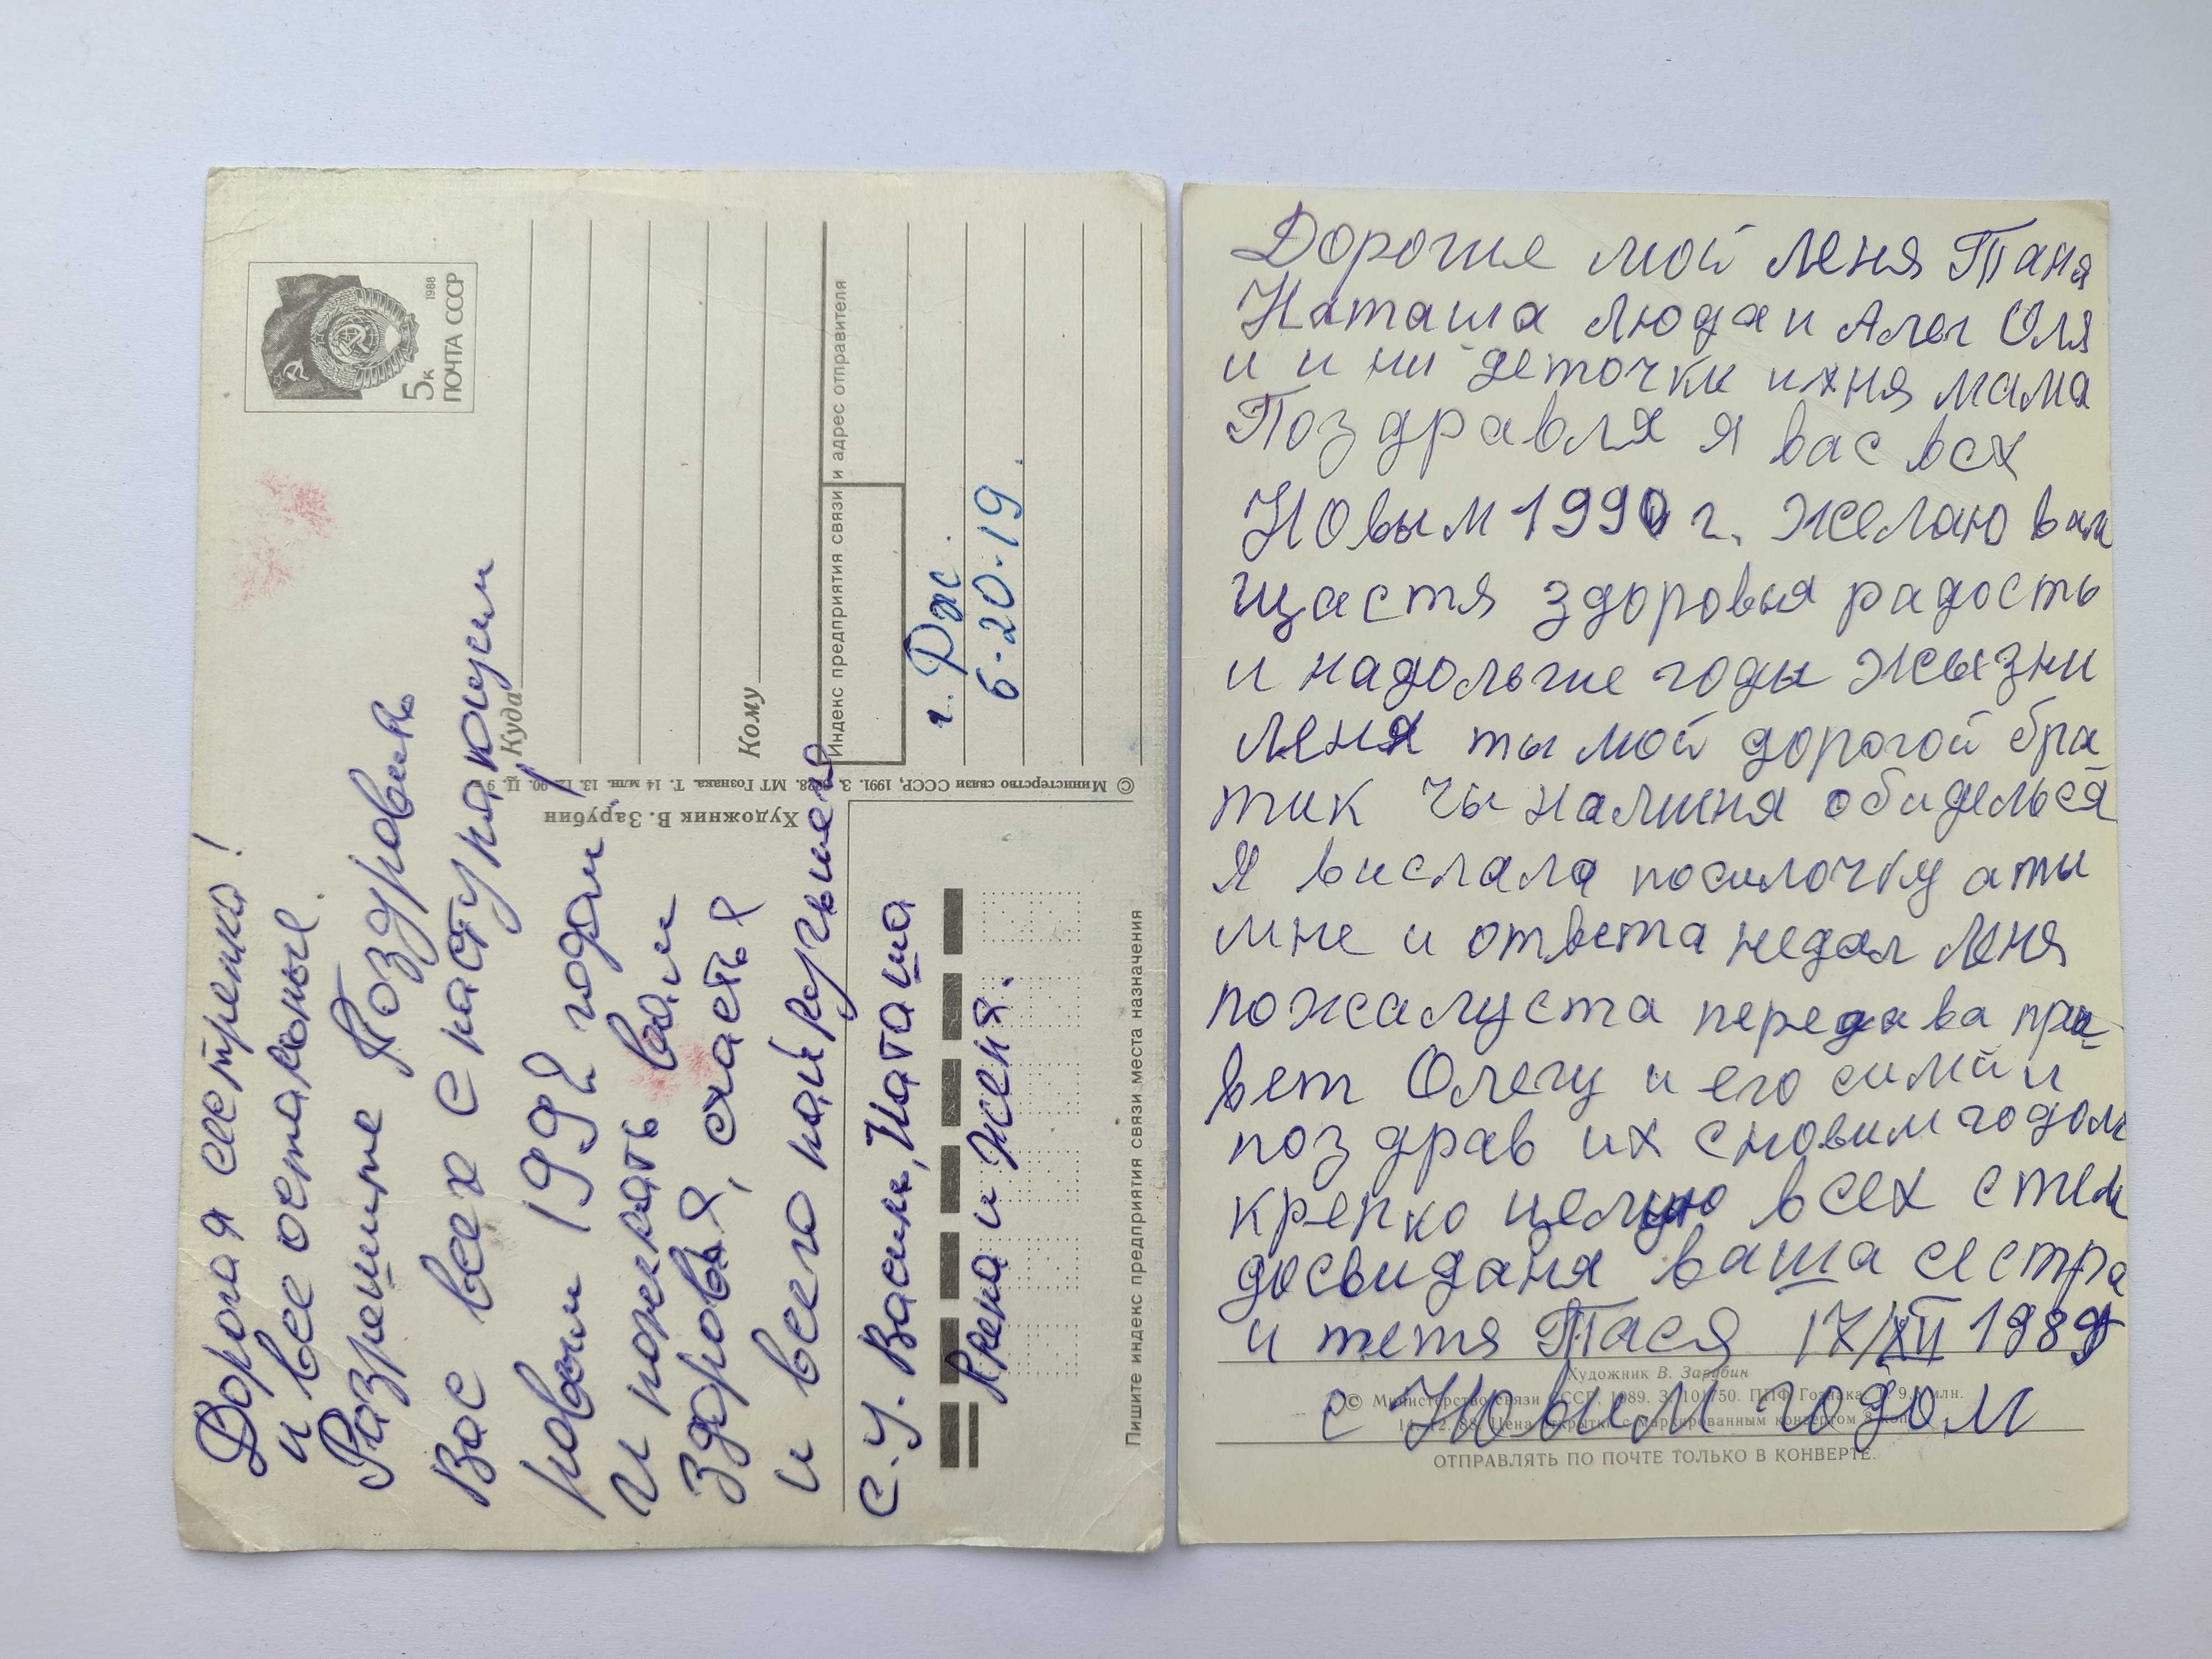 Дорогая сестренка!
и все остальные.
Разрешите Поздровить
Вас всех с наступающим
новым 1992 годом,
и пожелать вам
здоровья, счастья
и всего наилучшего
с.у. Васили, Наташа
Ирена и Женя.
5к
1988
ПОЧТА СССР
Куда
Кому
Индекс предприятия связи и адрес отправителя
г. Ржс.
6-20-19.
© Министерство связи СССР, 1991. З. МТ Гознака. Т. 14 млн. 13. 12. 90. Ц.
Художник В. Зарубин
Пишите индекс предприятия связи места назначения
Дорогие мой Леня Таня
Наташа Люда и Алег Оля
и и ни деточки ихня мама
Поздравля я вас всх
Новым 1990 г. Желаю вам
щастя здоровья радость
и надольгие годы жызни
Леня ты мой дорогой бра
тик чы наминя обиделься
Я вислала посилочку а ти
мне и ответа недал Леня
пожалуста передава при-
вет Олегу и его симйи
поздрав их сновим годом
крепко целую всех стем
досвиданя ваша сестра
и тетя Тася 17/XII 1989
с Новим годом
Художник В. Зарубин
© Министерство связи СССР, 1989. З. 101750. ППФ Гознака. 9, млн.
14. 12. 88. Цена открытки с маркированным конвертом 8 коп.
ОТПРАВЛЯТЬ ПО ПОЧТЕ ТОЛЬКО В КОНВЕРТЕ.